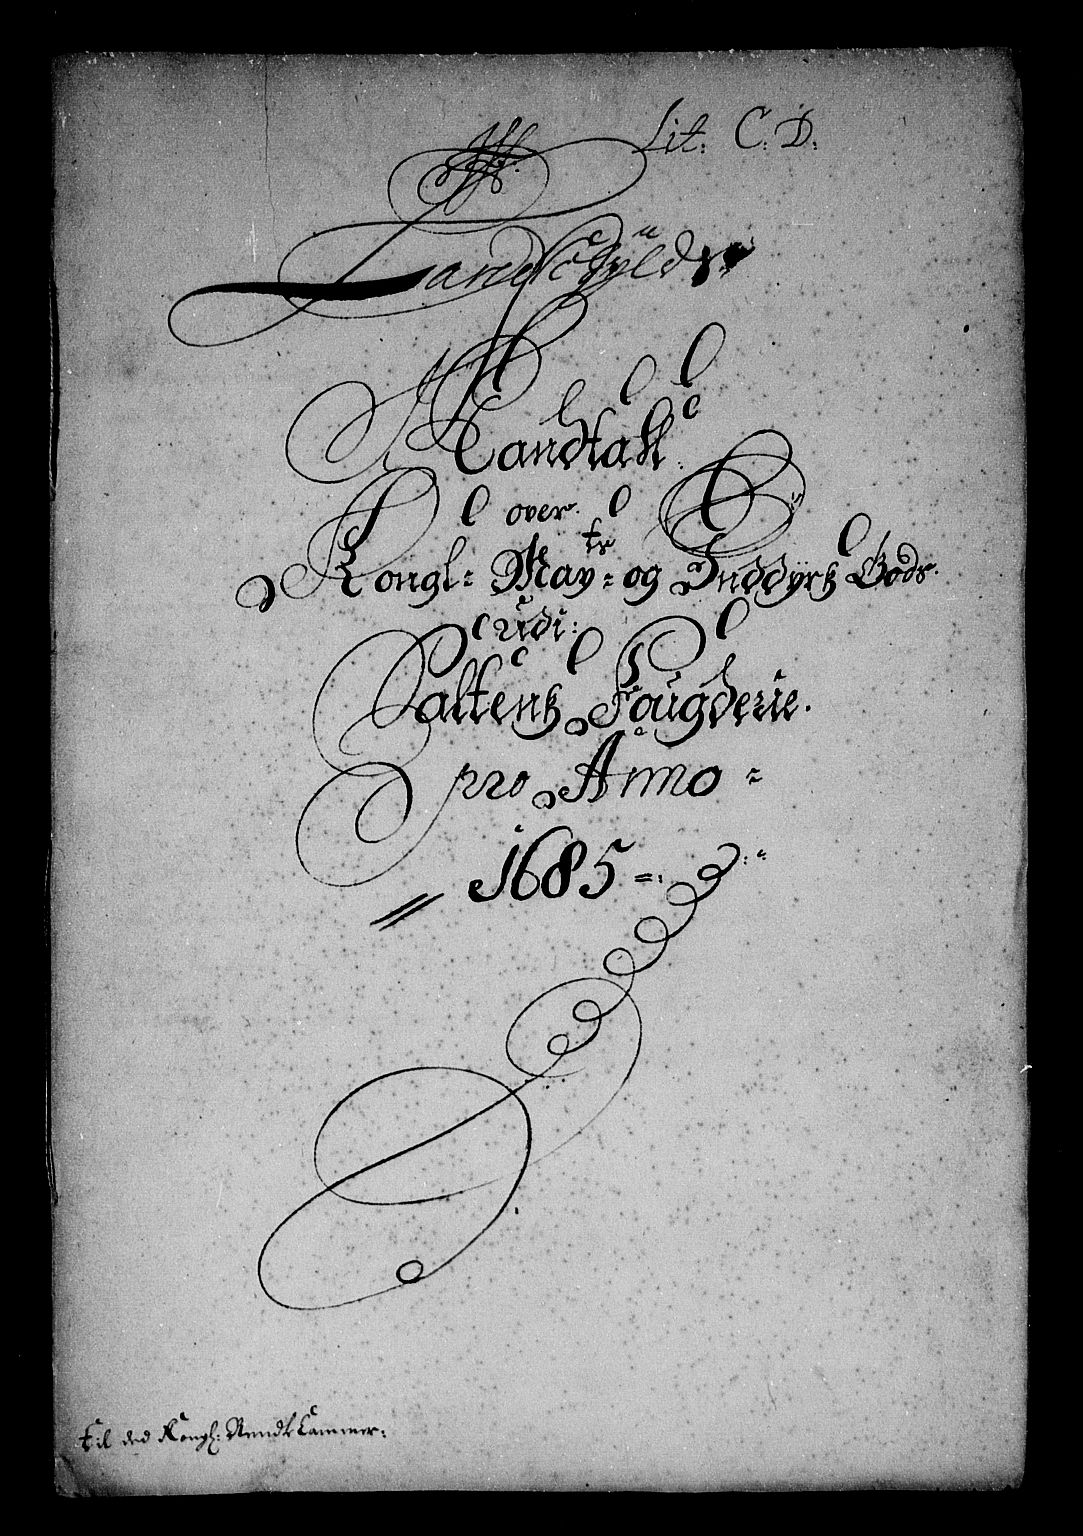 Lit. C. D.
Landschÿlds
Mandtall
over
Kongl: May:ts og Inddÿrs Gods
udi:
Saltens Fougderie.
pro Anno
1685
Til ded Kongl: Rendte Cammer: